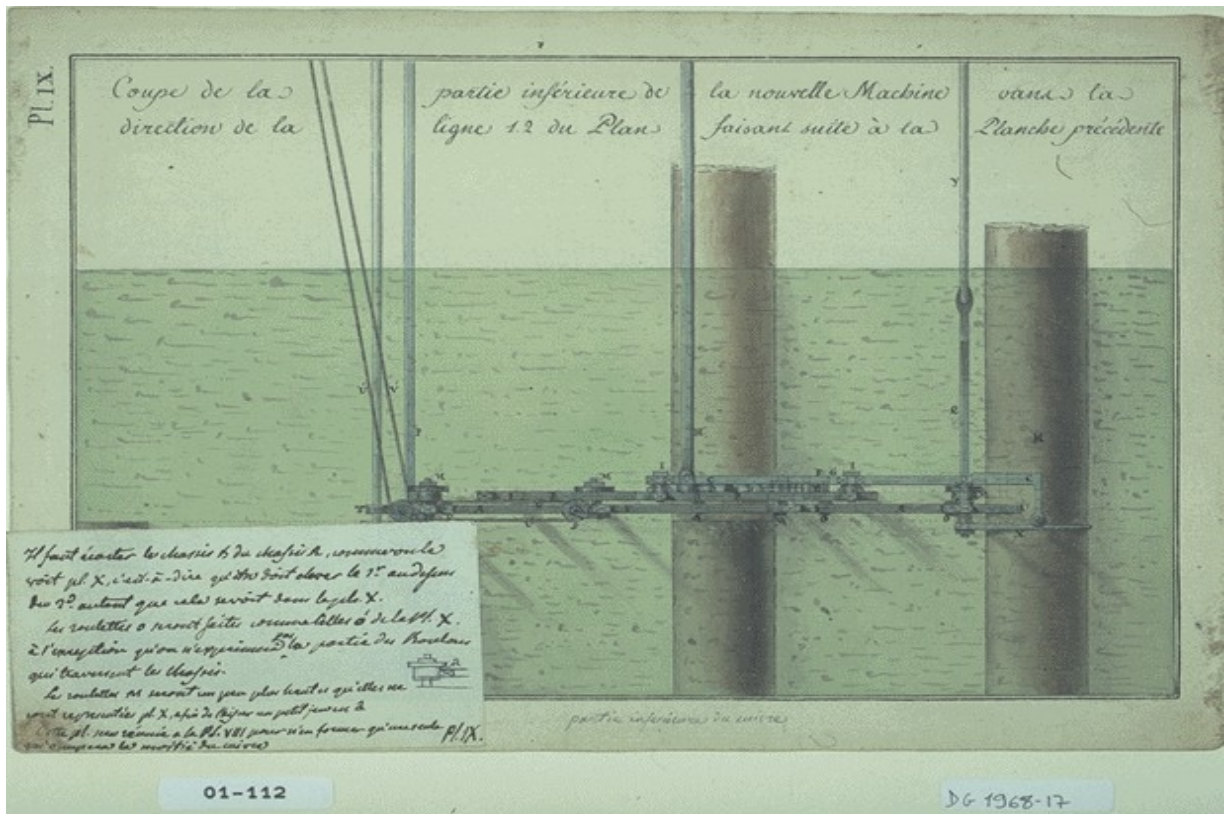 Pl. IX.
Coupe de la partie inférieure de la nouvelle Machine dans la
direction de la ligne 1.2 du Plan faisant suite à la Planche précédente
Il faut écarter le chassis B du chassis A, comme on le
voit pl. X, c'est-à-dire qu'on doit élever le 1er. au dessus
du 2d. autant que cela se voit dans la pl. X.
Les roulettes o seront faites comme celles o de la Pl. X.
à l'exception qu'on n'exprimera pas la partie des Boulons
qui traversent les chassis.
Les roulettes M seront un peu plus hautes qu'elles ne
sont representées pl. X, afin de laisser un petit jeu
Cette pl. sera réunie a la Pl. VIII pour n'en former qu'une seule
la moitié du cuivre
Pl. IX.
partie inférieure du cuivre
01-112
DG 1968-17